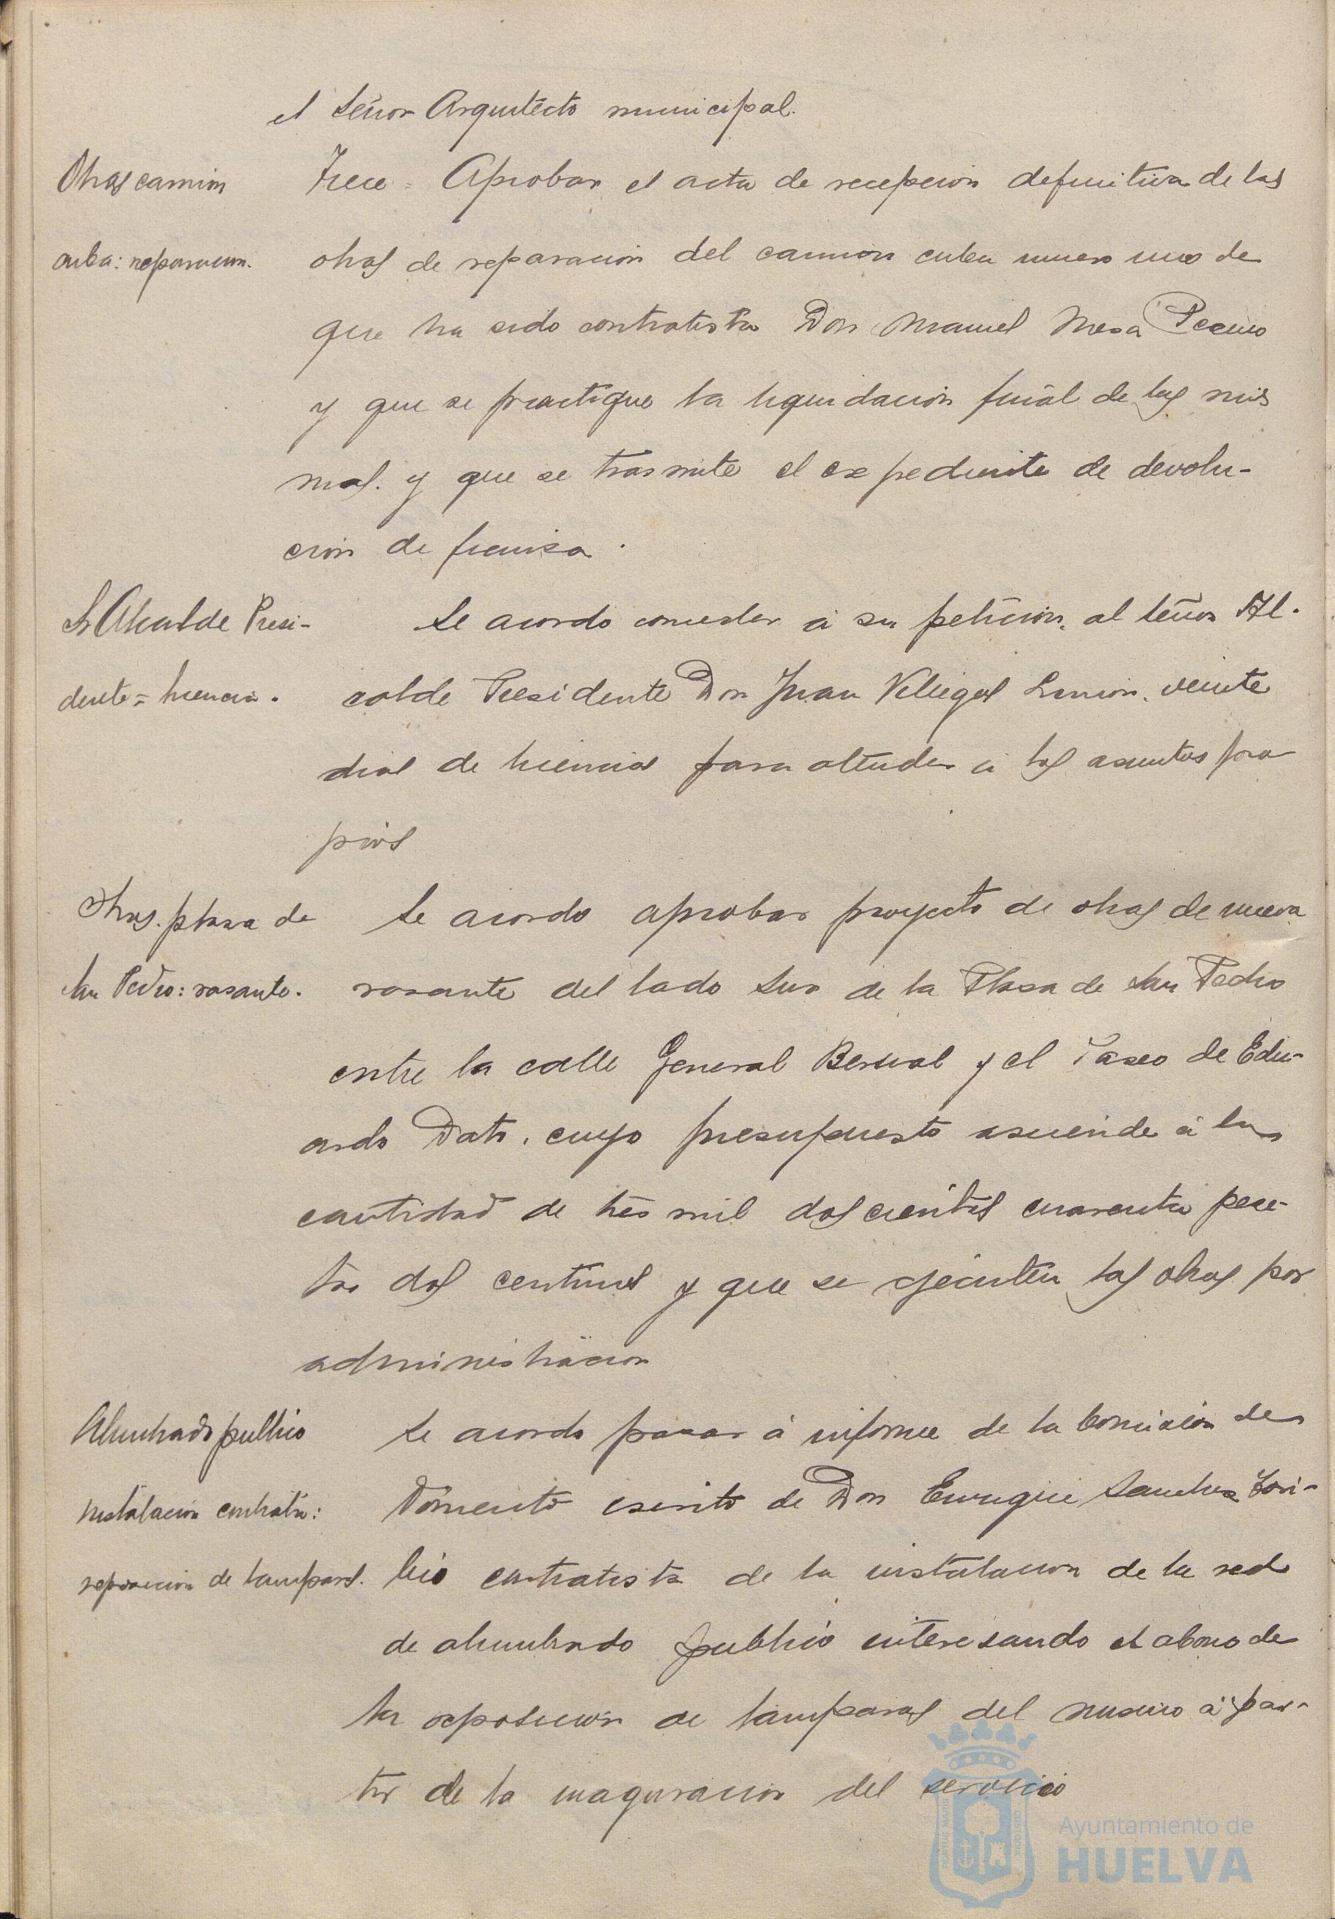 el Señor Arquitecto municipal.
Obras camion
cuba: reparacion.
Trece = Aprobar el acta de recepcion definitiva de las
obras de reparacion del camion cuba numero uno de
que ha sido contratista Don Manuel Mesa
y que se practique la liquidacion final de las mis
mas. y que se trasmite el expediente de devolu-
cion de fianza.
Sr Alcalde Presi-
dente = licencia.
Se acordo conceder a su peticion, al Señor Al-
calde Presidente Don Juan Villegas veinte
dias de licencia para atender a los asuntos pro
pios
Obras. plaza de
San Pedro: rasante.
Se acordo aprobar proyecto de obras de nueva
rasante del lado Sur de la Plaza de San Pedro
entre la calle General Bernal y el Paseo de Edu-
ardo Dato, cuyo presupuesto asciende a la
cantidad de tres mil doscientas cuarenta pese-
tas dos centimos y que se ejecuten las obras por
administracion
Alumbrado publico
instalacion contrata:
reposicion de lamparas.
Se acordo pasar a informe de la Comision de
Fomento escrito de Don Enrique Sanchez Tori-
bio contratista de la instalacion de la red
de alumbrado publico interesando el abono de
la reposicion de lamparas del mismo a par-
tir de la inaguracion del servicio
Ayuntamiento de
HUELVA